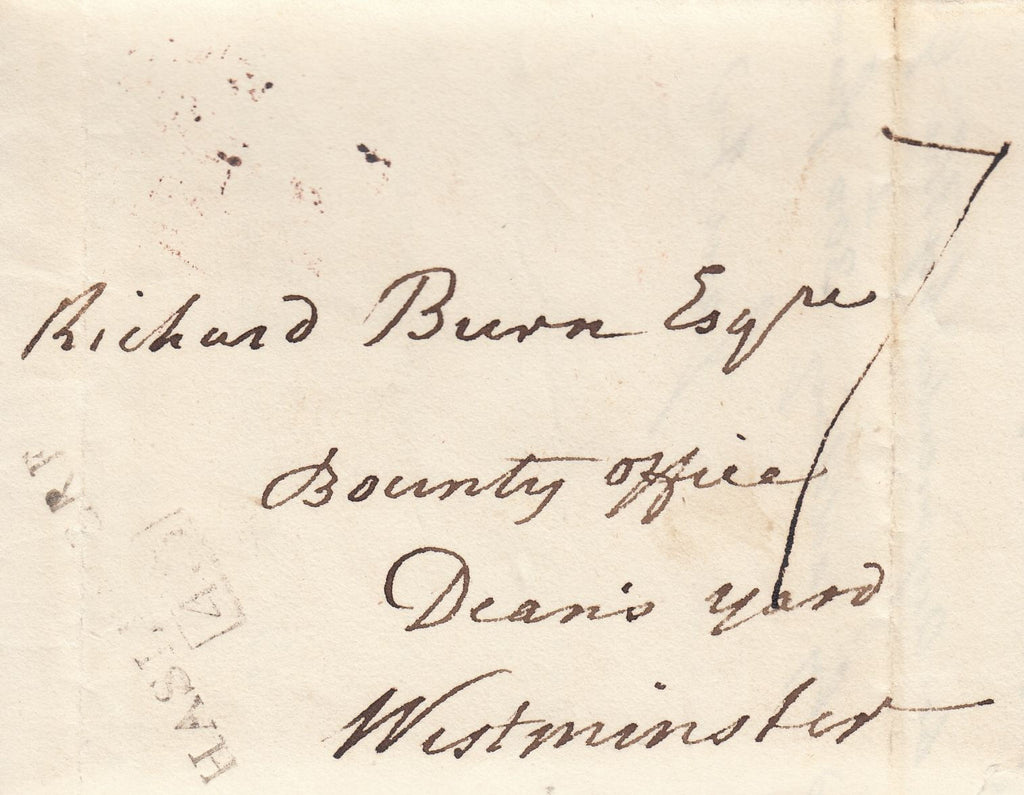 7
Richard Burn Esqre
Bounty office
Dean's yard
Westminster